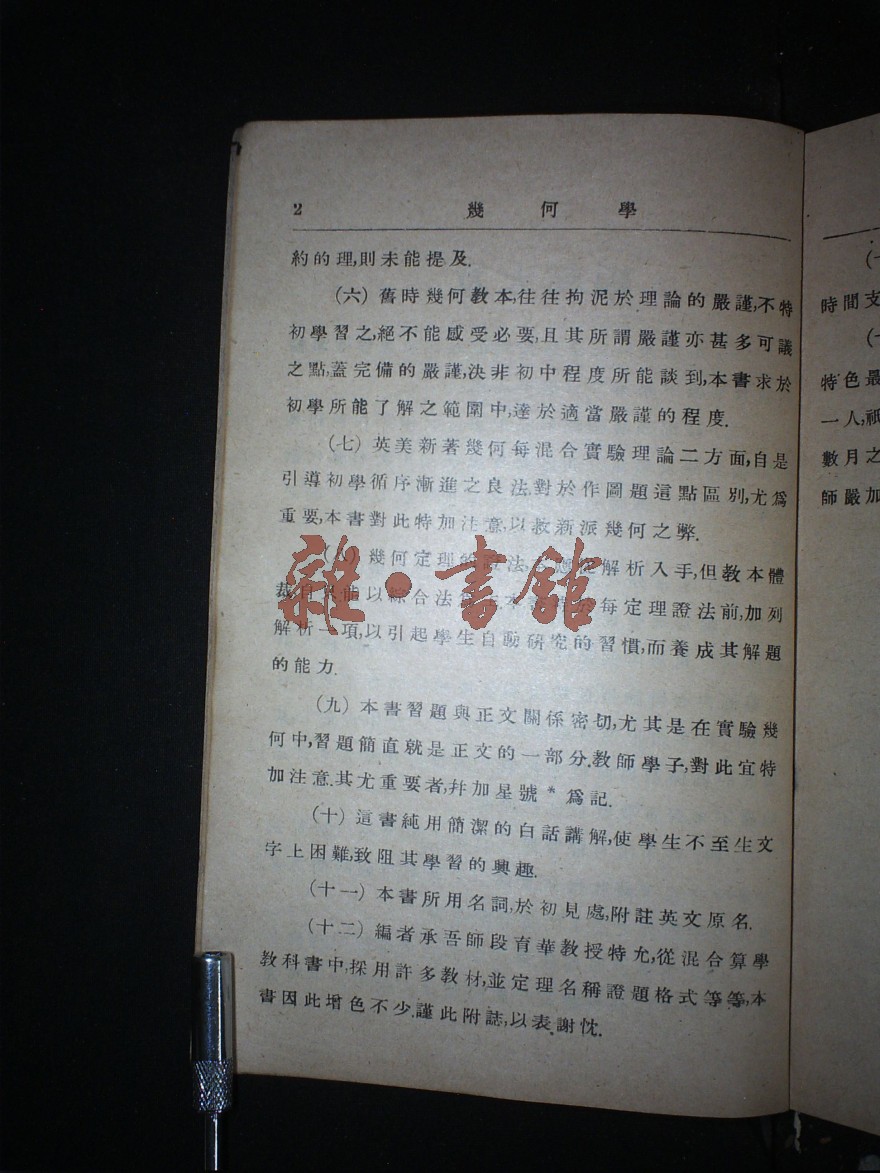 2 幾何學
約的理,則未能提及.
(六) 舊時幾何教本,往往拘泥於理論的嚴謹,不特
初學習之,絕不能感受必要,且其所謂嚴謹亦甚多可議
之點,蓋完備的嚴謹,決非初中程度所能談到,本書求於
初學所能了解之範圍中,達於適當嚴謹的程度.
(七) 英美新著幾何每混合實驗理論二方面,自是
引導初學循序漸進之良法,對於作圖題這點區別,尤爲
重要,本書對此特加注意,以救新派幾何之弊.
(八) 幾何定理的證法,解析入手,但教本體
裁,以綜合法本書每定理證法前,加列
解析一項,以引起學生自動研究的習慣,而養成其解題
的能力.
(九) 本書習題與正文關係密切,尤其是在實驗幾
何中,習題簡直就是正文的一部分.教師學子,對此宜特
加注意.其尤重要者,幷加星號 * 爲記.
(十) 這書純用簡潔的白話講解,使學生不至生文
字上困難,致阻其學習的興趣.
(十一) 本書所用名詞,於初見處,附註英文原名.
(十二) 編者承吾師段育華教授特允,從混合算學
教科書中,採用許多教材,並定理名稱證題格式等等,本
書因此增色不少.謹此附誌,以表謝忱.
雜·書館
(十
時間支
(十
特色最
一人,祇
數月之
師嚴加